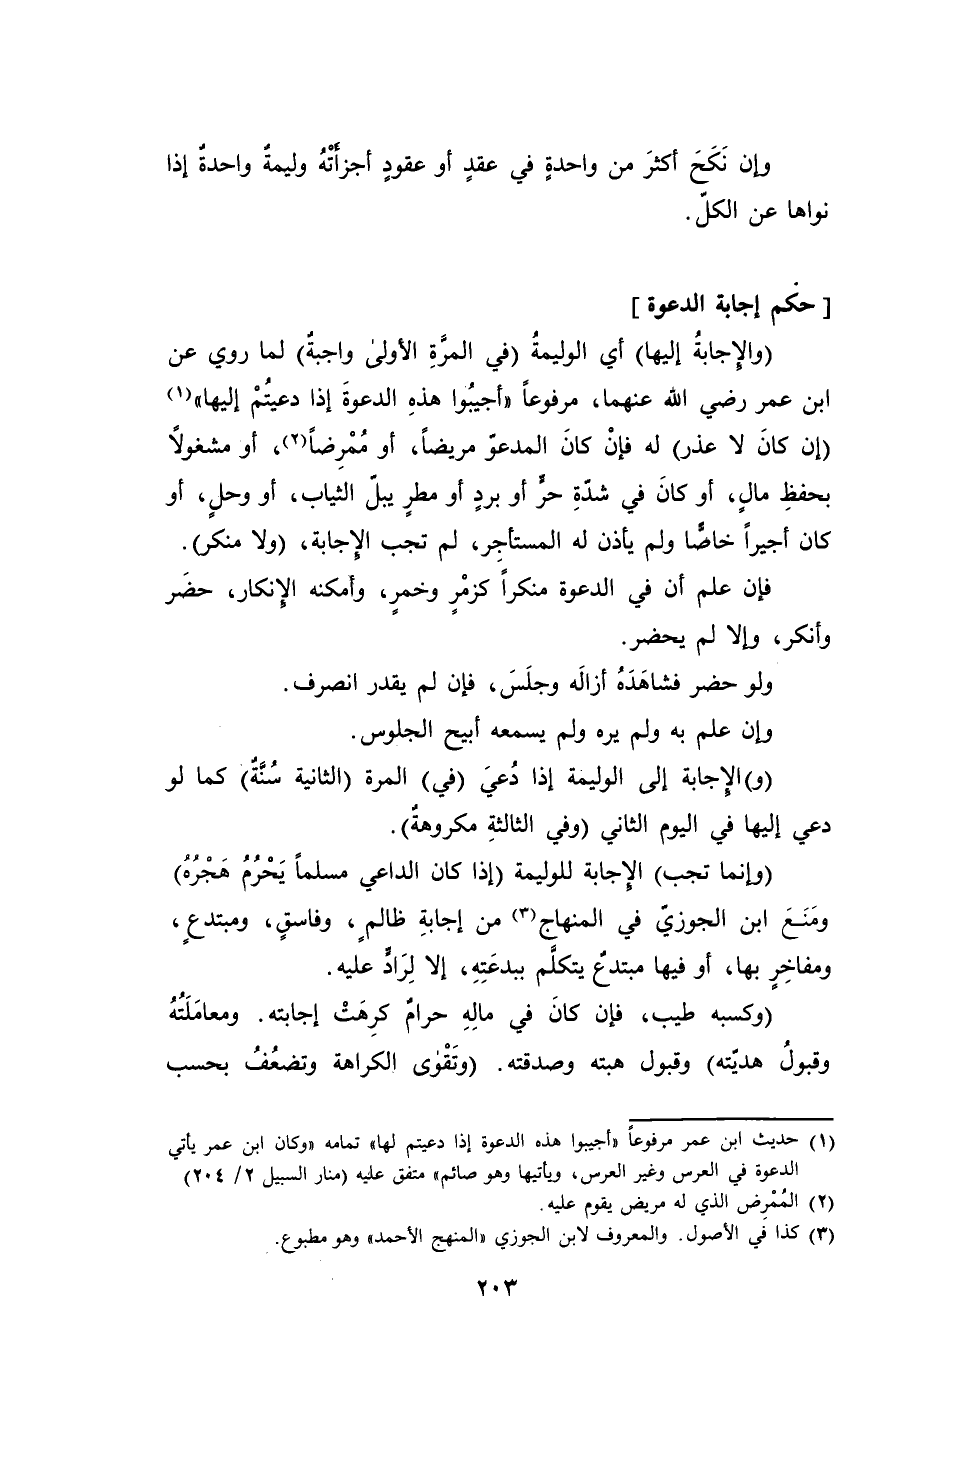 وإن نَكَحَ أكثرَ من واحدةٍ في عقدٍ أو عقودٍ أجزأَتْهُ وليمةٌ واحدةٌ إذا
نواها عن الكلّ.
[ حكم إجابة الدعوة ]
(والإِجابةُ إليها) أي الوليمةُ (في المرَّةِ الأولىٰ واجبةٌ) لما روي عن
ابن عمر رضي الله عنهما، مرفوعاً «أجيبُوا هذهِ الدعوةَ إذا دعيتُمْ إليها»(١)
(إن كانَ لا عذر) له فإنْ كانَ المدعوّ مريضاً، أو مُمْرِضاً(٢)، أو مشغولاً
بحفظِ مالٍ، أو كانَ في شدّةِ حرٍّ أو بردٍ أو مطرٍ يبلّ الثياب، أو وحلٍ، أو
كان أجيراً خاصًّا ولم يأذن له المستأجِر، لم تجب الإِجابة، (ولا منكر).
فإن علم أن في الدعوة منكراً كزمْرٍ وخمرٍ، وأمكنه الإنكار، حضَر
وأنكر، وإلا لم يحضر.
ولو حضر فشاهَدَهُ أزالَه وجلَسَ، فإن لم يقدر انصرف.
وإن علم به ولم يره ولم يسمعه أبيح الجلوس.
(و)الإِجابة إلى الوليمة إذا دُعيَ (في) المرة (الثانية سُنَّةٌ) كما لو
دعي إليها في اليوم الثاني (وفي الثالثةِ مكروهةٌ).
(وإنما تجب) الإِجابة للوليمة (إذا كان الداعي مسلماً يَحْرُمُ هَجْرُهُ)
ومَنَعَ ابن الجوزيّ في المنهاج(٣) من إجابةِ ظالمٍ، وفاسقٍ، ومبتدعٍ،
ومفاخِرٍ بها، أو فيها مبتدعٌ يتكلَّم ببدعَتِهِ، إلا لِرَادٍّ عليه.
(وكسبه طيب، فإن كانَ في مالِهِ حرامٌ كرِهَتْ إجابته. ومعامَلَتُهُ
وقبولُ هديّته) وقبول هبته وصدقته. (وتَقْوٰى الكراهة وتضعُفُ بحسب
(١) حديث ابن عمر مرفوعاً «أجيبوا هذه الدعوة إذا دعيتم لها» تمامه «وكان ابن عمر يأتي
الدعوة في العرس وغير العرس، ويأتيها وهو صائم» متفق عليه (منار السبيل ٢/ ٢٠٤)
(٢) المُمْرِض الذي له مريض يقوم عليه.
(٣) كذا في الأصول. والمعروف لابن الجوزي «المنهج الأحمد» وهو مطبوع.
٢٠٣